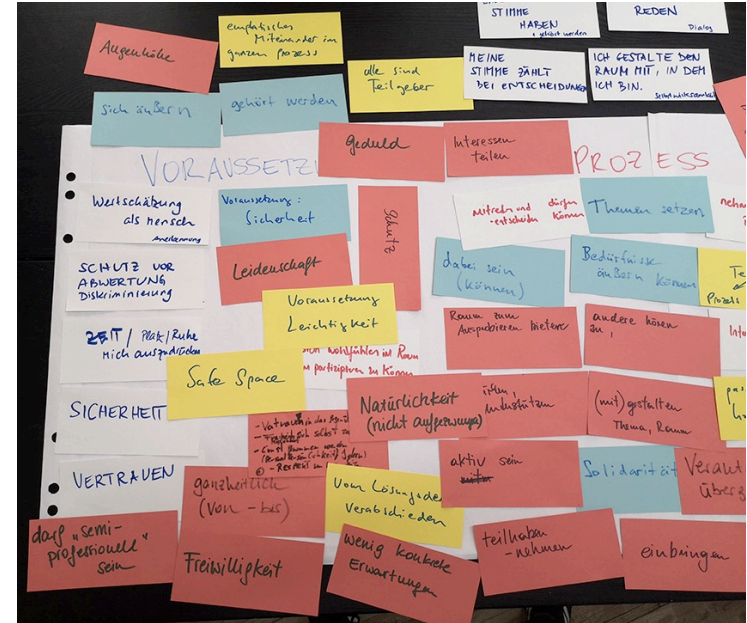 STIMME
HABEN
gehört werden
REDEN
Dialog
empathisches
Miteinander im
ganzen Prozess
Augenhöhe
alle sind
Teilgeber
MEINE
STIMME ZÄHLT
BEI ENTSCHEIDUNGEN
ICH GESTALTE DEN
RAUM MIT, IN DEM
ICH BIN.
Selbstwirksamkeit
sich äußern
gehört werden
Geduld
Interessen
teilen
VORAUSSETZU
PROZESS
Wertschätzung
als Mensch
Anerkennung
Voraussetzung:
Sicherheit
Schutz
Mitreden und
-entscheiden
dürfen
können
Themen setzen
SCHUTZ VOR
ABWERTUNG
Diskriminierung
Leidenschaft
dabei sein
(können)
Bedürfnisse
äußern können
Voraussetzung
Leichtigkeit
Prozess
ZEIT / Platz / Ruhe
mich auszudrücken
Raum zum
Ausprobieren bieten
andere hören
zu,
sich wohlfühlen im Raum
partizipieren zu können
Safe Space
SICHERHEIT
Natürlichkeit
(nicht aufgezwungen)
unterstützen
(mit)gestalten
Thema, Raum
aktiv sein
Solidarität
VERTRAUEN
ganzheitlich
(von - bis)
vom Lösungsdenken
verabschieden
darf "semi-
professionell"
sein
Freiwilligkeit
wenig konkrete
Erwartungen
teilhaben
-nehmen
einbringen